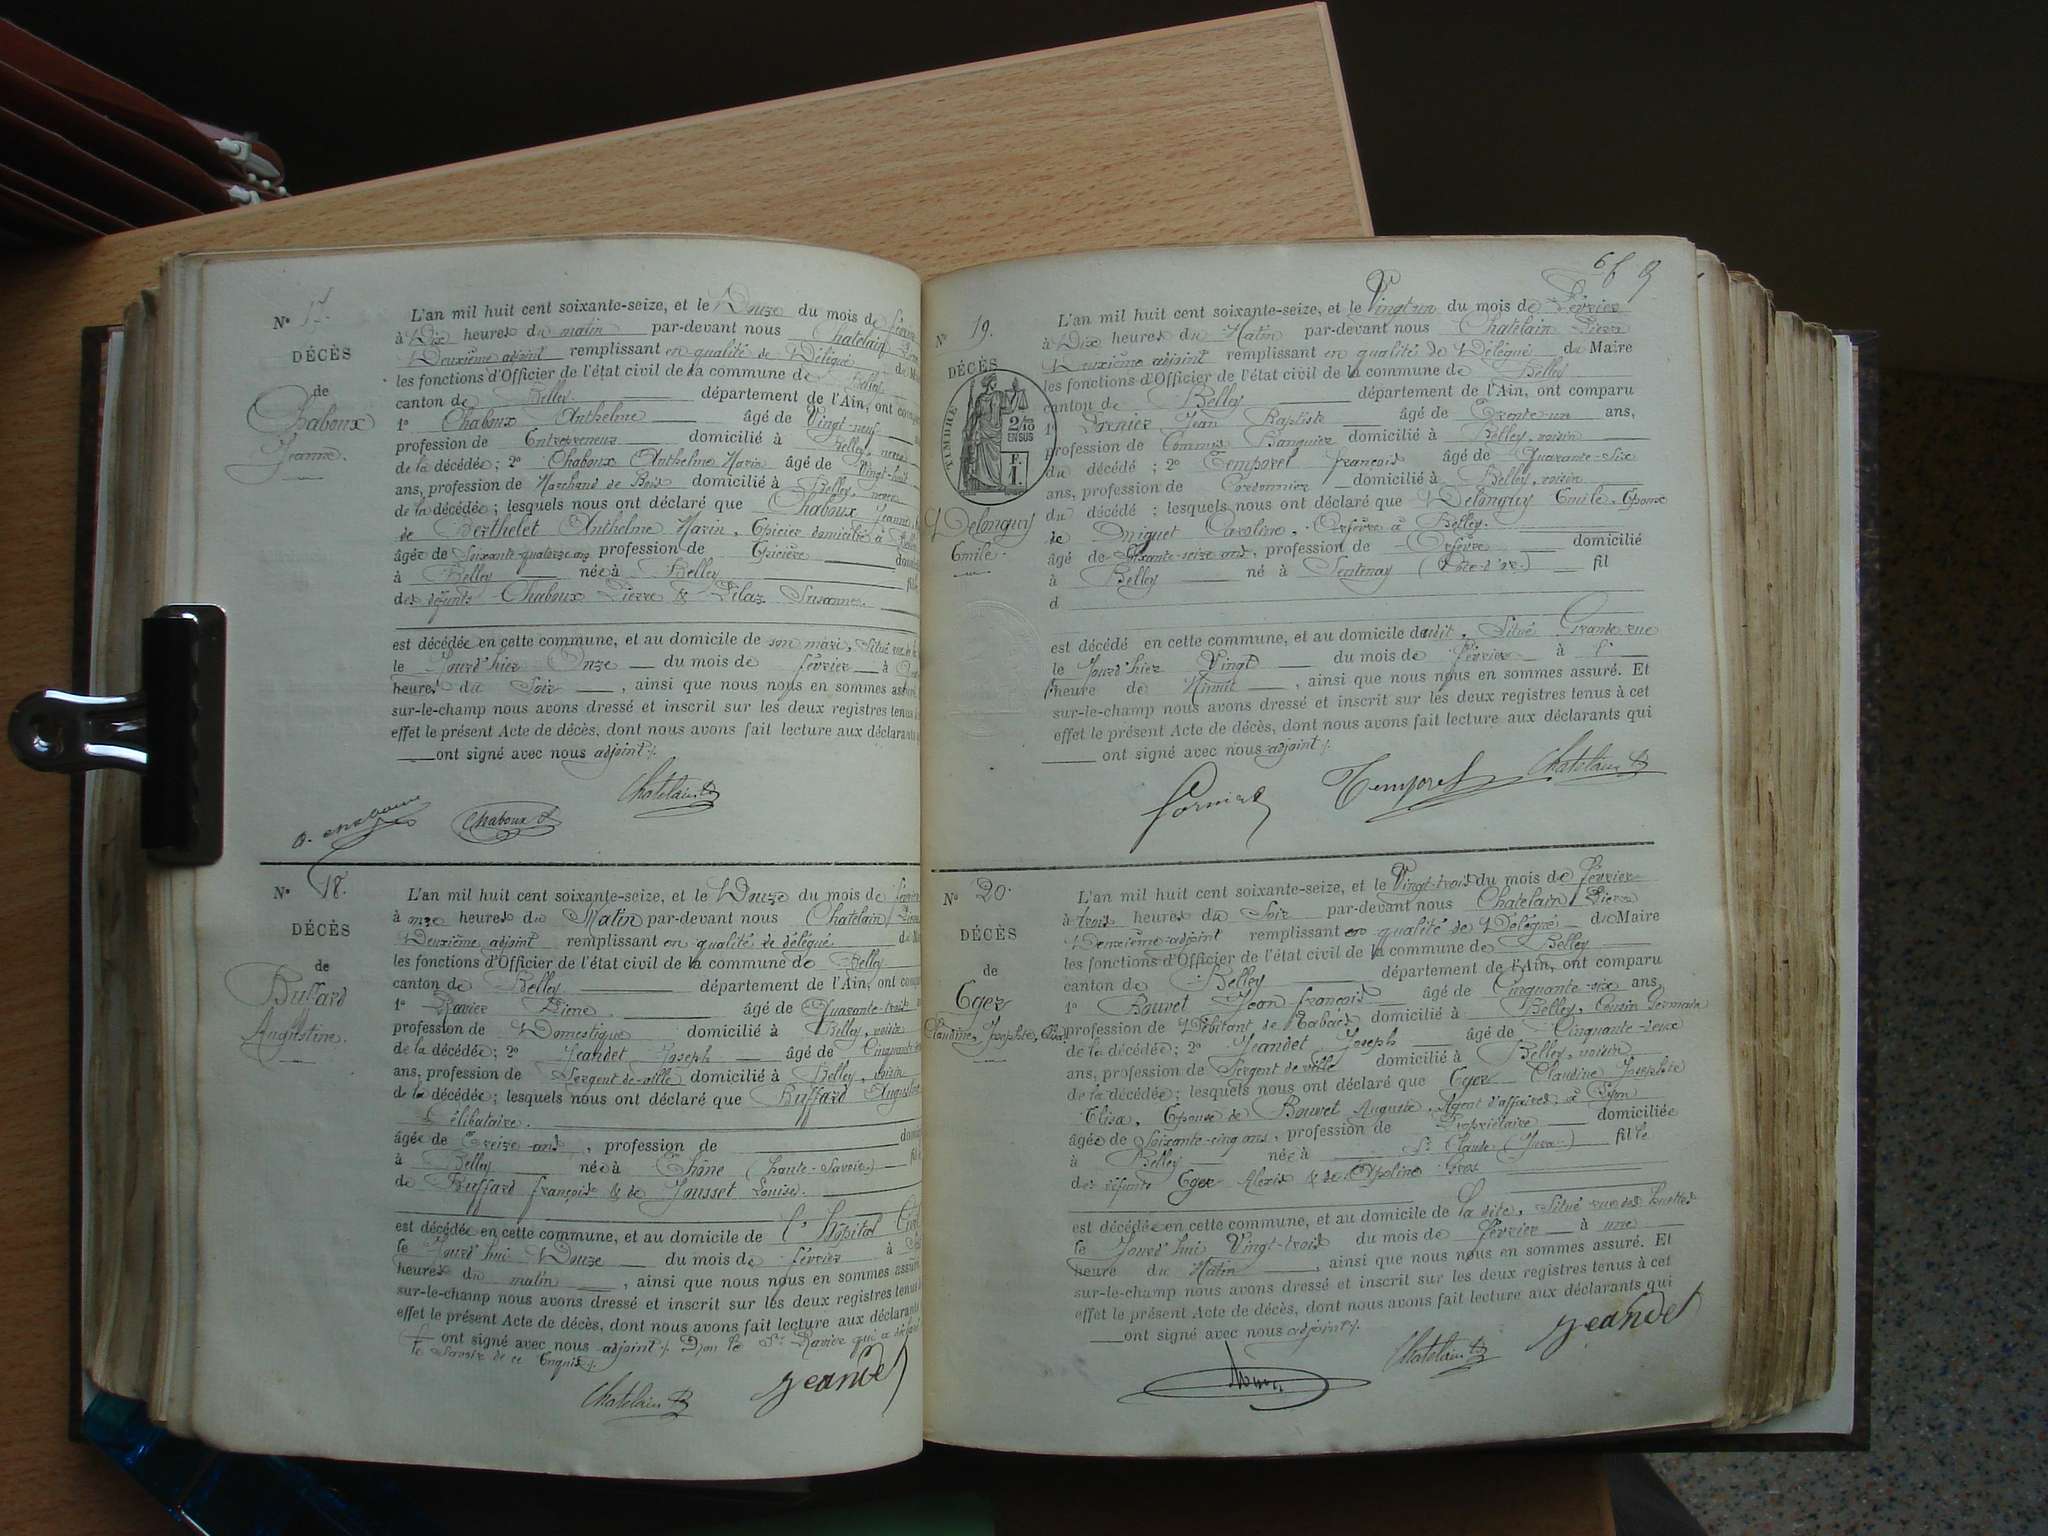 N° 17.
DÉCÈS
de
Chaboux
Jeanne.
L'an mil huit cent soixante-seize, et le Douze du mois de février
à Dix heures du matin par-devant nous Chatelain Pierre
Deuxième adjoint remplissant en qualité de Délégué du
les fonctions d'Officier de l'état civil de la commune de Belley
canton de Belley département de l'Ain, ont
1° Chaboux Anthelme âgé de Vingt-neuf
profession de Entrepreneur domicilié à Belley, neveu
de la décédée; 2° Chaboux Anthelme Marie âgé de Vingt-huit
ans, profession de Marchand de Bois domicilié à Belley, neveu
de la décédée; lesquels nous ont déclaré que Chaboux Jeanne
de Berthelet Anthelme Marin, Epicier domicilié à Belley
âgée de Soixante-quatorze ans profession de Epicière
à Belley née à Belley
des défunts Chaboux Pierre & Pilaz Susanne.
est décédée en cette commune, et au domicile de son mari, Situé
le Jourd'hier Onze du mois de février à
heures du Soir, ainsi que nous nous en sommes assuré.
sur-le-champ nous avons dressé et inscrit sur les deux registres tenus
effet le présent Acte de décès, dont nous avons fait lecture aux déclarants
ont signé avec nous adjoint ⁒
Chatelain
Chaboux
N° 18.
DÉCÈS
de
Buffard
Augustine.
L'an mil huit cent soixante-seize, et le Douze du mois de février
à onze heures du Matin par-devant nous Chatelain Pierre
Deuxième adjoint remplissant en qualité de délégué du
les fonctions d'Officier de l'état civil de la commune de Belley
canton de Belley département de l'Ain, ont
1° Ravier Pierre âgé de Quarante-trois
profession de Domestique domicilié à Belley, voisin
de la décédée; 2° Jeandet Joseph âgé de Cinquante
ans, profession de Sergent de-ville domicilié à Belley, voisin
de la décédée; lesquels nous ont déclaré que Buffard Augustine
Célibataire.
âgée de Treize ans, profession de
à Belley née à Thône (haute-Savoie)
de Buffard françois & de Jousset Louise.
est décédée en cette commune, et au domicile de l'hôpital
le Jourd'hui Douze du mois de février à
heures du matin, ainsi que nous nous en sommes assuré
sur-le-champ nous avons dressé et inscrit sur les deux registres tenus
effet le présent Acte de décès, dont nous avons fait lecture aux déclarants
ont signé avec nous adjoint ⁒ Non le Sr Ravier qui a déclaré
le Savoir de ce Enquis ⁒
Chatelain
Jeandet
N° 19.
DÉCÈS
TIMBRE
2/10
EN SUS
F.
1.
Delonguy
Emile.
L'an mil huit cent soixante-seize, et le Vingt-un du mois de Février
à Dix heures du Matin par-devant nous Chatelain Pierre
Deuxième adjoint remplissant en qualité de Délégué du Maire
les fonctions d'Officier de l'état civil de la commune de Belley
canton de Belley département de l'Ain, ont comparu
1° Jean Baptiste âgé de Trente-un ans,
profession de Commis Banquier domicilié à Belley, voisin
du décédé; 2° Temporel françois âgé de Quarante-Six
ans, profession de Cordonnier domicilié à Belley, voisin
du décédé; lesquels nous ont déclaré que Delonguy Emile, Epoux
de Miguet Caroline, Orfèvre à Belley.
âgé de Soixante-seize ans, profession de Orfèvre domicilié
à Belley né à Santenay (Côte-d'or) fil
d
est décédé en cette commune, et au domicile dudit, Situé Grande rue
le Jourd'hier Vingt du mois de février à l'
heure de Minuit, ainsi que nous nous en sommes assuré. Et
sur-le-champ nous avons dressé et inscrit sur les deux registres tenus à cet
effet le présent Acte de décès, dont nous avons fait lecture aux déclarants qui
ont signé avec nous adjoint ⁒
Temporel
Chatelain
N° 20.
DÉCÈS
de
Eger
Claudine, Josephte, Elisa
L'an mil huit cent soixante-seize, et le Vingt-trois du mois de février
à trois heures du Soir par-devant nous Chatelain Pierre
Deuxième adjoint remplissant en qualité de Délégué du Maire
les fonctions d'Officier de l'état civil de la commune de Belley
canton de Belley département de l'Ain, ont comparu
1° Bouvet Jean françois âgé de Cinquante-six ans,
profession de Débitant de Tabacs domicilié à Belley, Cousin Germain
de la décédée; 2° Jeandet Joseph âgé de Cinquante-deux
ans, profession de Sergent de ville domicilié à Belley, voisin
de la décédée; lesquels nous ont déclaré que Eger Claudine Josephte
Elisa, Epouse de Bouvet Auguste, Agent d'affaires, à Lyon
âgée de Soixante-cinq ans, profession de Propriétaire domiciliée
à Belley née à St Claude (Jura) fille
des défunts Eger Alexis & de Apoline Gros
est décédée en cette commune, et au domicile de la dite, Situé rue des
le Jourd'hui Vingt-trois du mois de février à une
heure du Matin, ainsi que nous nous en sommes assuré. Et
sur-le-champ nous avons dressé et inscrit sur les deux registres tenus à cet
effet le présent Acte de décès, dont nous avons fait lecture aux déclarants qui
ont signé avec nous adjoint ⁒
Chatelain
Jeandet